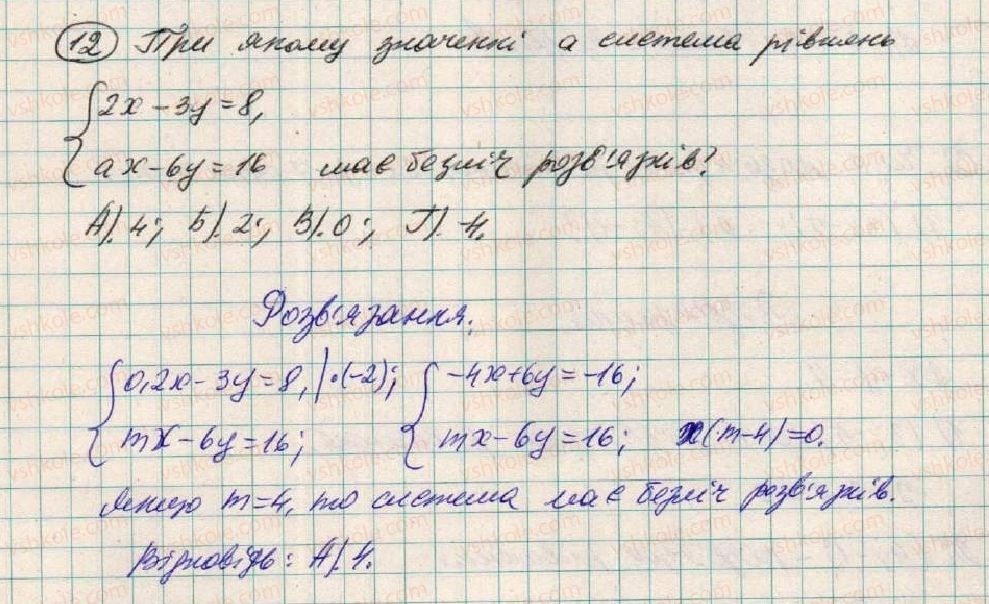 12 При якому значенні а система рівнянь
{2x - 3y = 8,
ax - 6y = 16 має безліч розв'язків?
А). 4; Б). 2; В). 0; Г). -4.
Розв'язання.
{0,2x - 3y = 8, | · (-2); {-4x + 6y = -16;
mx - 6y = 16; mx - 6y = 16; x(m - 4) = 0.
Якщо m = 4, то система має безліч розв'язків.
Відповідь: А). 4.